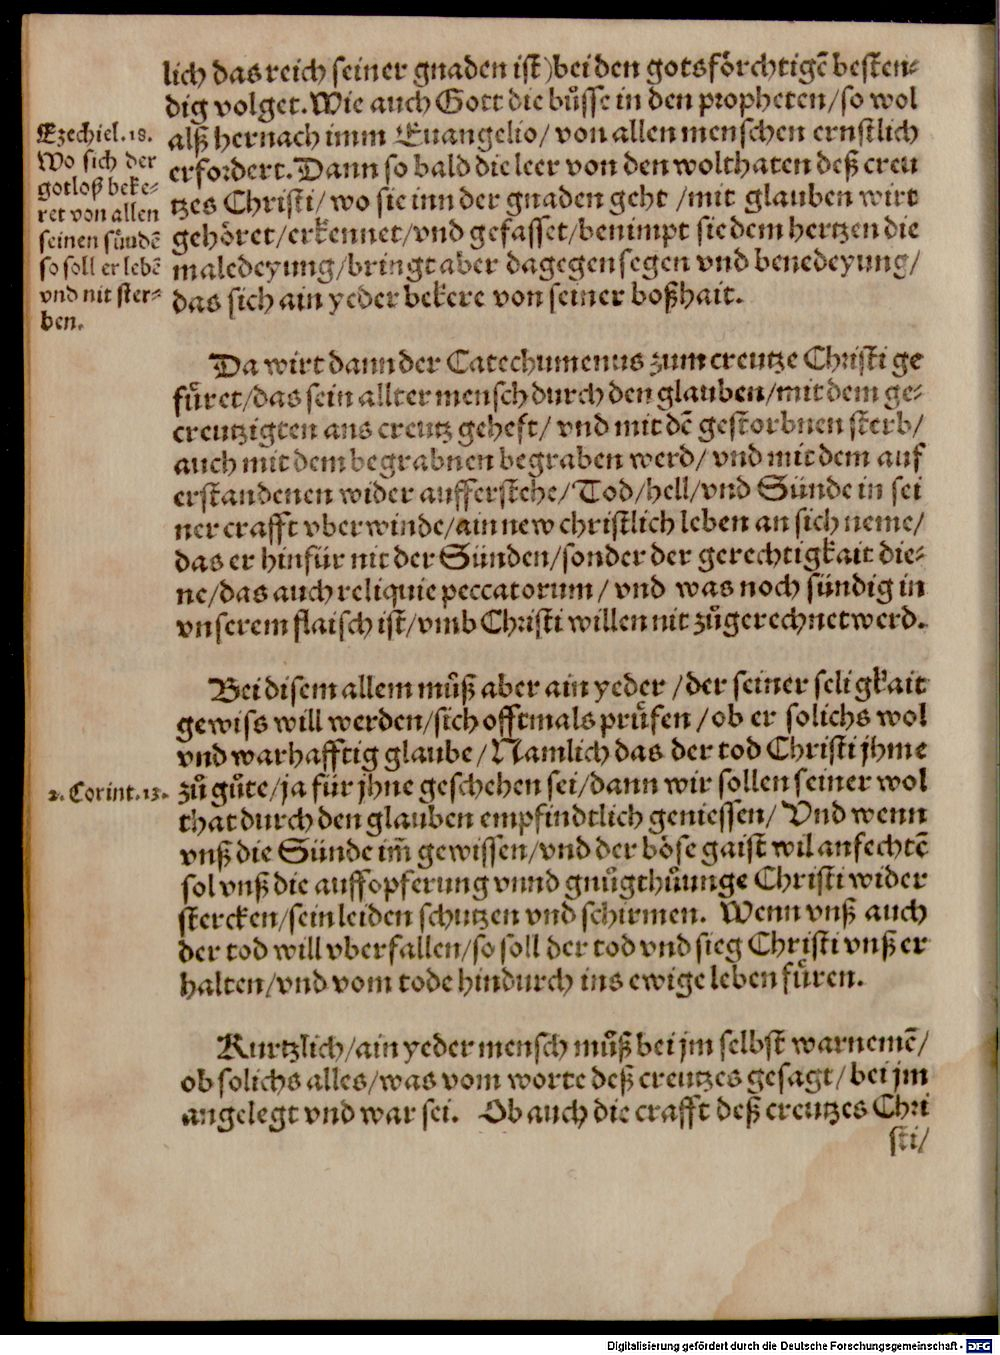 lich das reich seiner gnaden ist) bei den gotsförchtigē besten⸗
dig volget. Wie auch Gott die bůsse in den propheten/ so wol
alß hernach imm Euangelio/ von allen menschen ernstlich
erfordert. Dann so bald die leer von den wolthaten deß creu
tzes Christi/ wo sie inn der gnaden geht / mit glauben wirt
gehöret/ erkennet/ vnd gefasset/ benimpt sie dem hertzen die
maledeyung/ bringt aber dagegen segen vnd benedeyung/
das sich ain yeder bekere von seiner boßhait.
Ezechiel. 18.
Wo sich der
gotloß beke⸗
ret von allen
seinen sündē
so soll er lebē
vnd nit ster⸗
ben.
Da wirt dann der Catechumenus zum creutze Christi ge
füret/ das sein allter mensch durch den glauben/ mit dem ge⸗
creutzigten ans creutz geheft/ vnd mit dē gestorbnen sterb/
auch mit dem begrabnen begraben werd/ vnd mit dem auf
erstandenen wider aufferstehe/ Tod/ hell/ vnd Sünde in sei
ner crafft vberwinde/ ain new christlich leben an sich neme/
das er hinfür nit der Sünden/ sonder der gerechtigkait die⸗
ne/ das auch reliquie peccatorum/ vnd was noch sündig in
vnserem flaisch ist/ vmb Christi willen nit zůgerechnet werd.
Bei disem allem můß aber ain yeder / der seiner seligkait
gewiss will werden/ sich offtmals prüfen / ob er solichs wol
vnd warhafftig glaube/ Namlich das der tod Christi jhme
zů gůte/ ja für jhne geschehen sei/ dann wir sollen seiner wol
that durch den glauben empfindtlich geniessen/ Vnd wenn
vnß die Sünde im̄ gewissen/ vnd der böse gaist wil anfechtē
sol vnß die auffopferung vnnd gnůgthůunge Christi wider
stercken/ sein leiden schutzen vnd schirmen. Wenn vnß auch
der tod will vberfallen/ so soll der tod vnd sieg Christi vnß er
halten/ vnd vom tode hindurch ins ewige leben füren.
2. Corint. 13.
Kurtzlich/ ain yeder mensch můß bei jm selbst warnemē/
ob solichs alles/ was vom worte deß creutzes gesagt/ bei jm
angelegt vnd war sei. Ob auch die crafft deß creutzes Chri
sti/
Digitalisierung gefördert durch die Deutsche Forschungsgemeinschaft - DFG